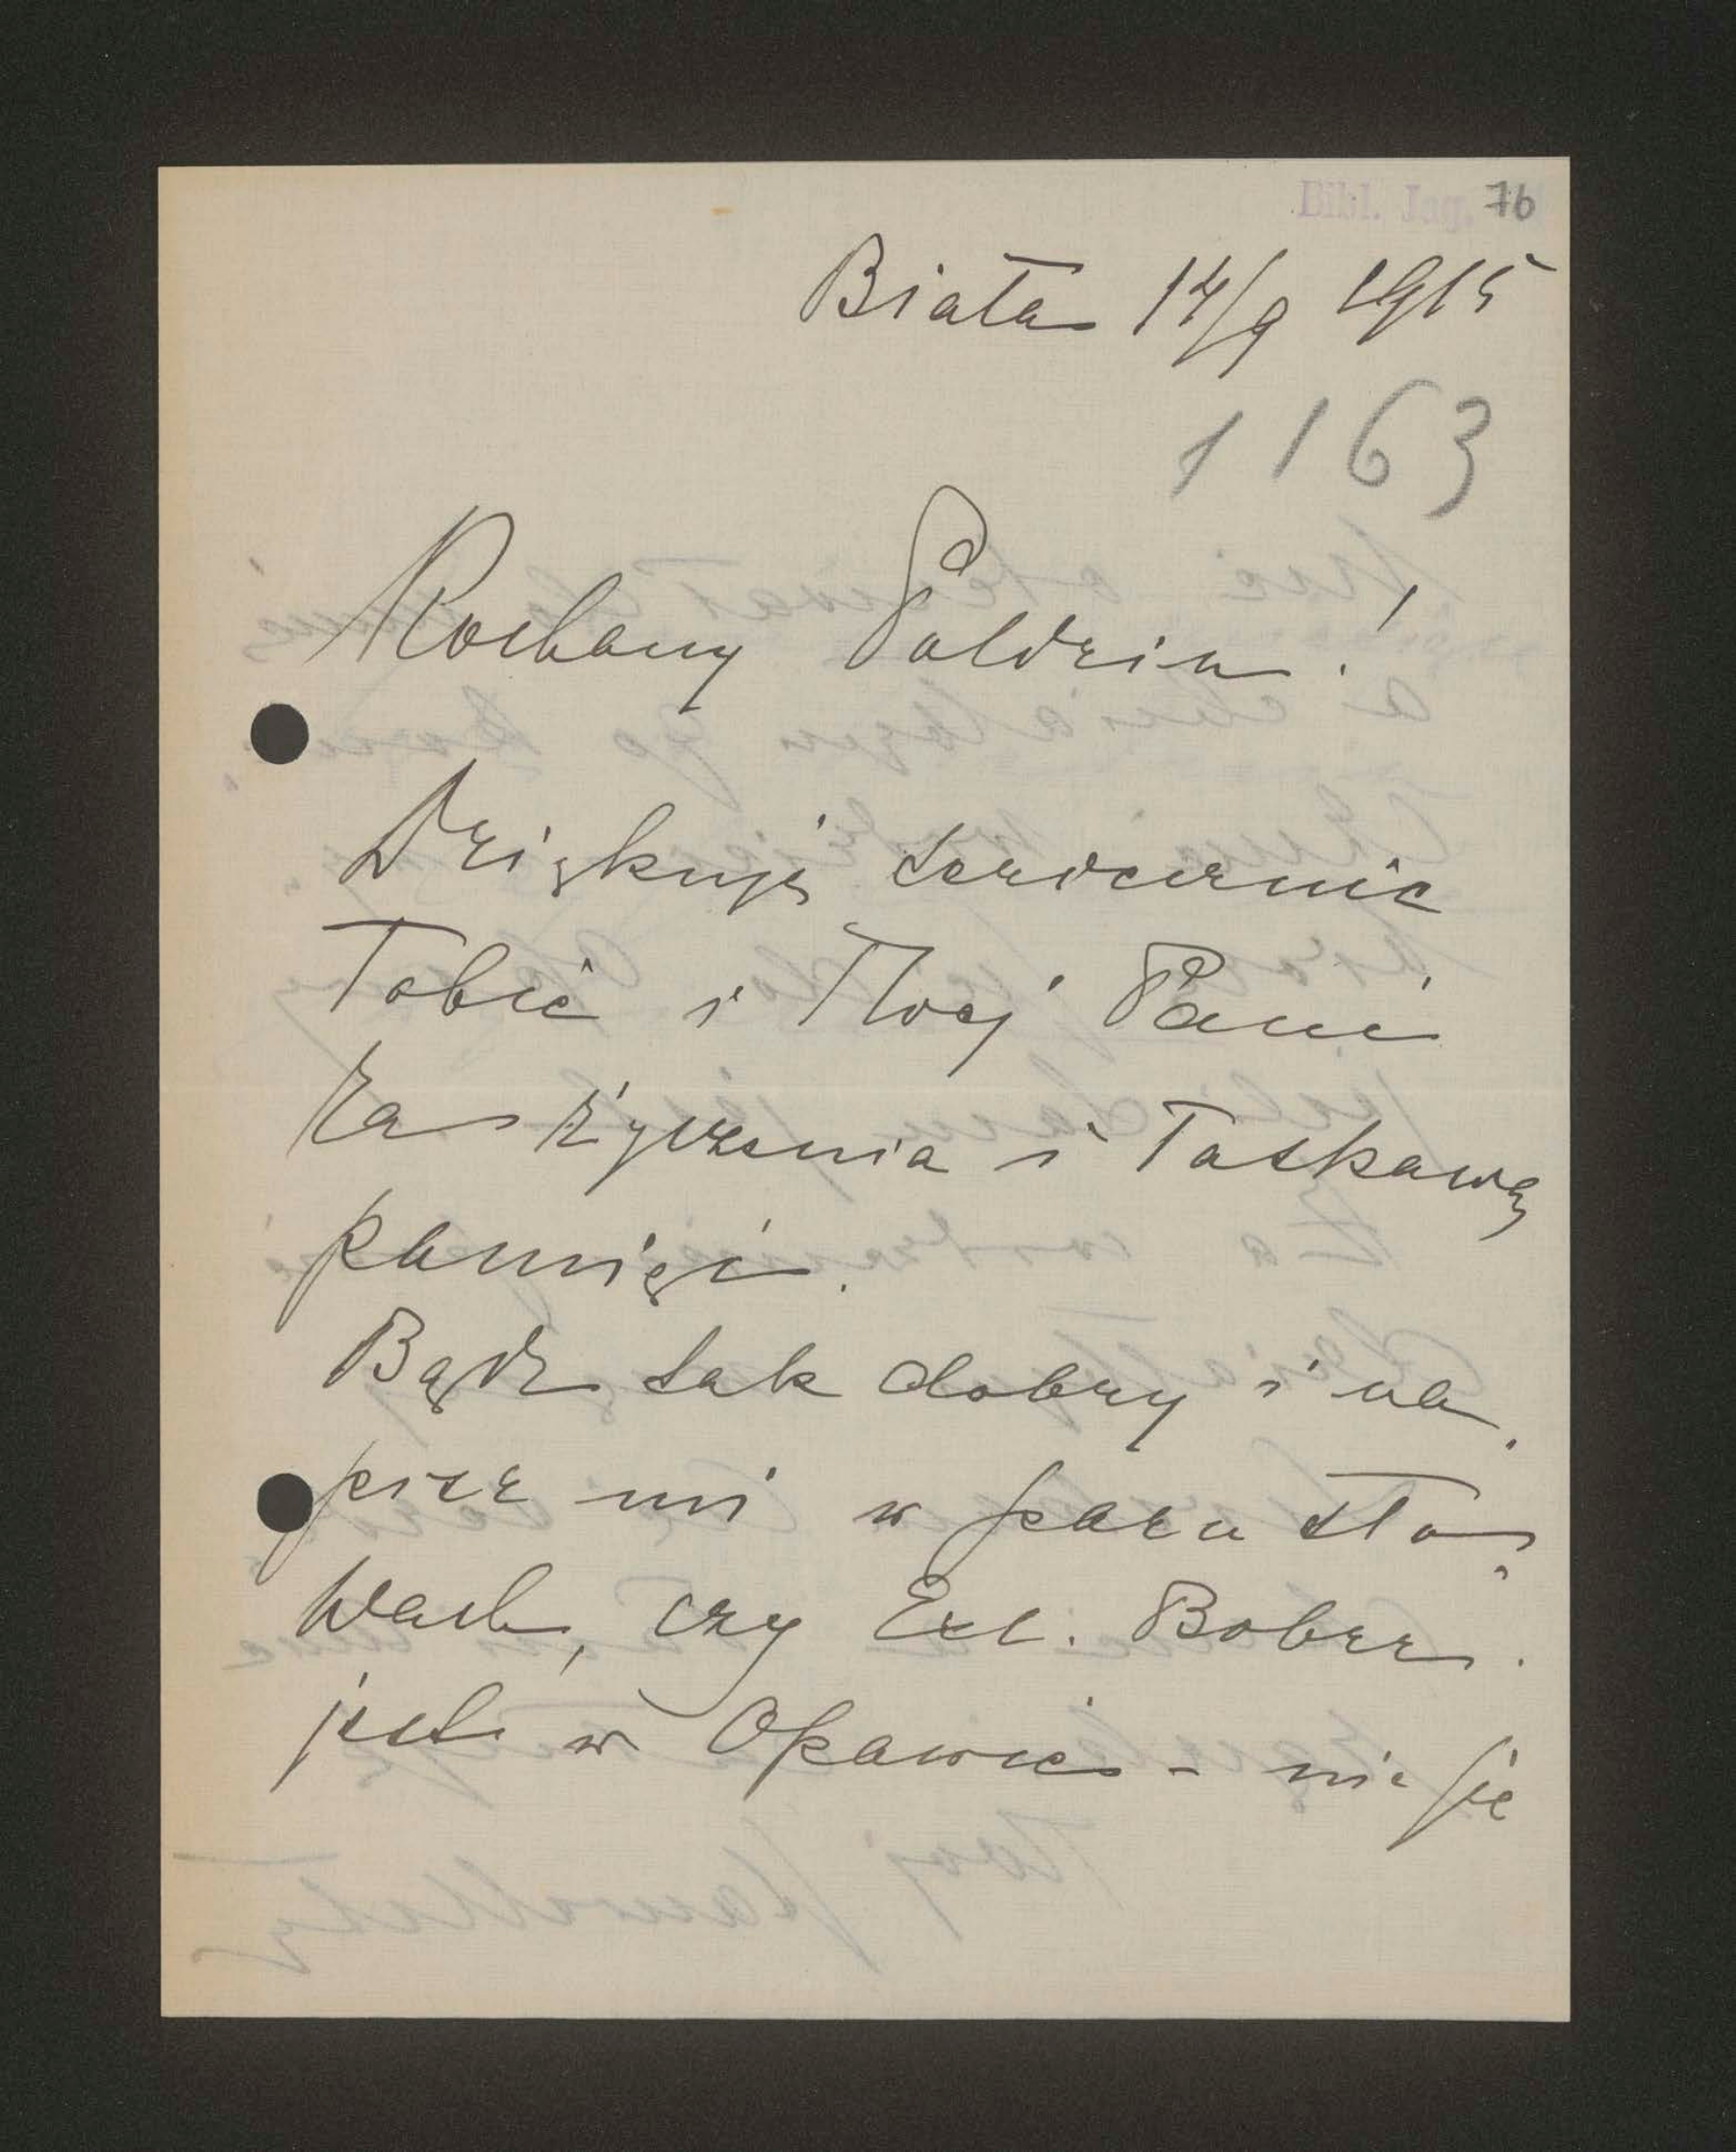 Bibl. Jag. 76
Biała 14/9 1915
1163
Kochany Poldziu!
Dziękuję serdecznie
Tobie i Twej Pani
za życzenia i łaskawą
pamięć.
Bądź tak dobry i na
pisz mi w paru sło
wach, czy Exc. Bobrz.
jest w Opawie - nie je